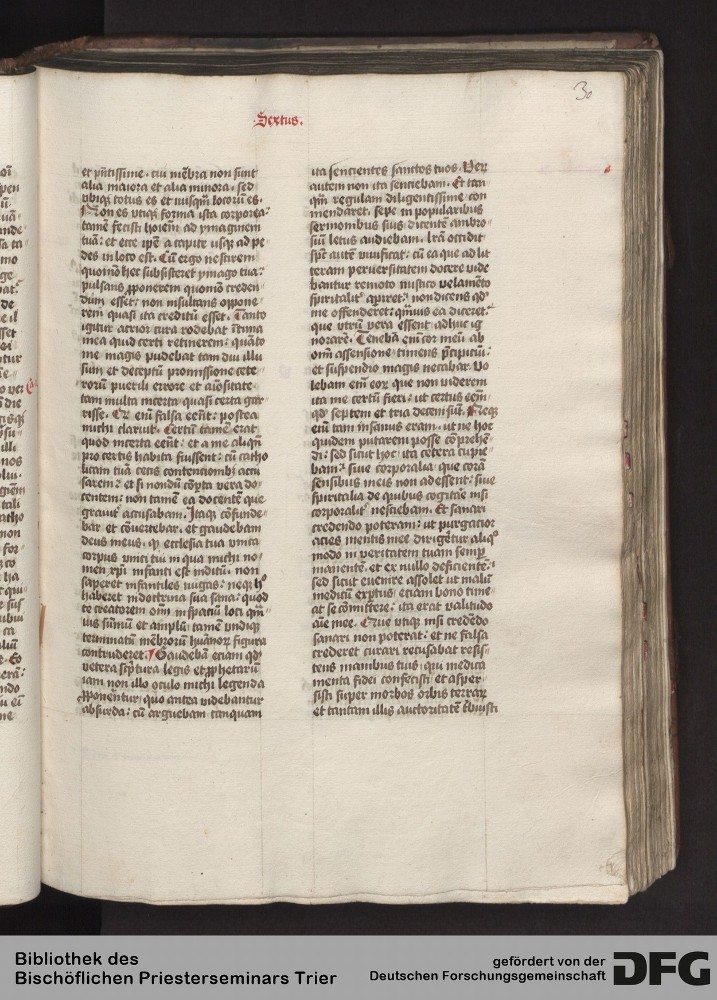 30
Sextus.
et pñtissime. cui mẽbra non sunt
alia maiora et alia minora. sed
vbiqꝫ totus es et nusqm̃ locorũ es.
Non es vtiqꝫ forma ista corporea:
tamẽ fecisti hoiẽm ad ymaginem
tuã: et ecce ipẽ a capite vsqꝫ ad pe
des in loco est. Cũ ergo nescirem
quomõ hec subsisteret ymago tua:
pulsans ꝓponerem quomõ creden
dum esset: non insultans oppone
rem quasi ita creditũ esset. Tanto
igitur acrior cura rodebat ĩtima
mea quid certi retinerem: quãto
me magis pudebat tam diu illu
sum et deceptũ promissione certo
rorũ puerili errore et aĩositate
tam multa incerta quasi certa gar
risse. Qr em̃ falsa eẽnt: postea
michi claruit. Certũ tamẽ erat
quod incerta eẽnt: et a me aliqñ
pro certis habita fuissent: cũ catho
licam tuã cecis contencioniƀꝫ accu
sarem: et si nondũ cõpta vera do
centem: non tamẽ ea docentẽ que
grauit̃ accusabam. Itaqꝫ cõfunde
bar et cõuertebar. et gaudebam
deus meus. qꝫ ecclesia tua vnica
corpus vnici tui in qua michi no
men xpĩ infanti est inditũ. non
saperet infantiles nugas: neqꝫ hº
haberet in doctrina sua sana: quod
te creatorem om̃ in spaciũ loci qm̃
uis sũmũ et amplũ: tamẽ vndiqꝫ
terminatũ mẽbrorũ huãnorꝫ figura
contruderet. Gaudebã eciam qd̃
vetera scp̃tura legis et ꝓphetarũ
iam non illo oculo michi legenda
ꝓponerentur. quo antea videbantur
absurda: cũ arguebam tanquam
ita sencientes sanctos tuos. Veꝝ
autem non ita senciebam. Et tan
qm̃ regulam diligentissime con
mendaret. sepe in popularibus
sermonibus suis dicentẽ ambro
siũ letus audiebam. lrã occidit
sp̃c autẽ viuificat: cũ ea que ad lit
teram peruersitatem docere vide
bantur remoto mistico velamẽto
spiritalit̃ aperiret. non dicens qd̃
me offenderet: qm̃uis ea diceret
que vtrũ vera essent adhuc ig
norarẽ. Tenebã em̃ cor meũ ab
om̃i assensione timens p̃cipiciũ:
et suspendio magis necabar. Vo
lebam em̃ eoꝝ que non viderem
ita me certũ fieri: vt certus eẽm
qd̃ septem et tria decem sĩt. Neqꝫ
em̃ tam insanus eram. vt ne hoc
quidem putarem posse cõprehẽ
di: sed sicut hoc. ita cetera cupie
bam: siue corporalia. que corã
sensibus meis non adessent: siue
spiritalia de quibus cogitãe nisi
corporalit̃ nesciebam. Et sanari
credendo poteram: vt purgacior
acies mentis mee dirigẽtur aliqº
modo in veritatem tuam semꝑ
manentẽ. et ex nullo deficientẽ:
sed sicut euenire assolet vt malũ
medicũ expertus: eciam bono time
at se cõmittere: ita erat valitudo
aĩe mee. Que vtiqꝫ nisi credẽdo
sanari non poterat: et ne falsa
crederet curari recusabat resis
tens manibus tuis. qui medica
menta fidei confecisti. et asper
sisti super morbos orbis terrarꝫ
et tantam illis auctoritatẽ t̃buisti
Bibliothek des
Bischöflichen Priesterseminars Trier
gefördert von der
Deutschen Forschungsgemeinschaft
DFG